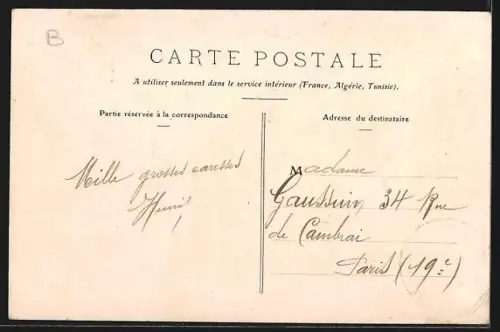 B
CARTE POSTALE
A utiliser seulement dans le service intérieur (France, Algérie, Tunisie).
Partie réservée à la correspondance
Mille grosses caresses
Henri
Adresse du destinataire
Madame
Gaussuin, 34 Rue
de Cambrai
Paris (19e)